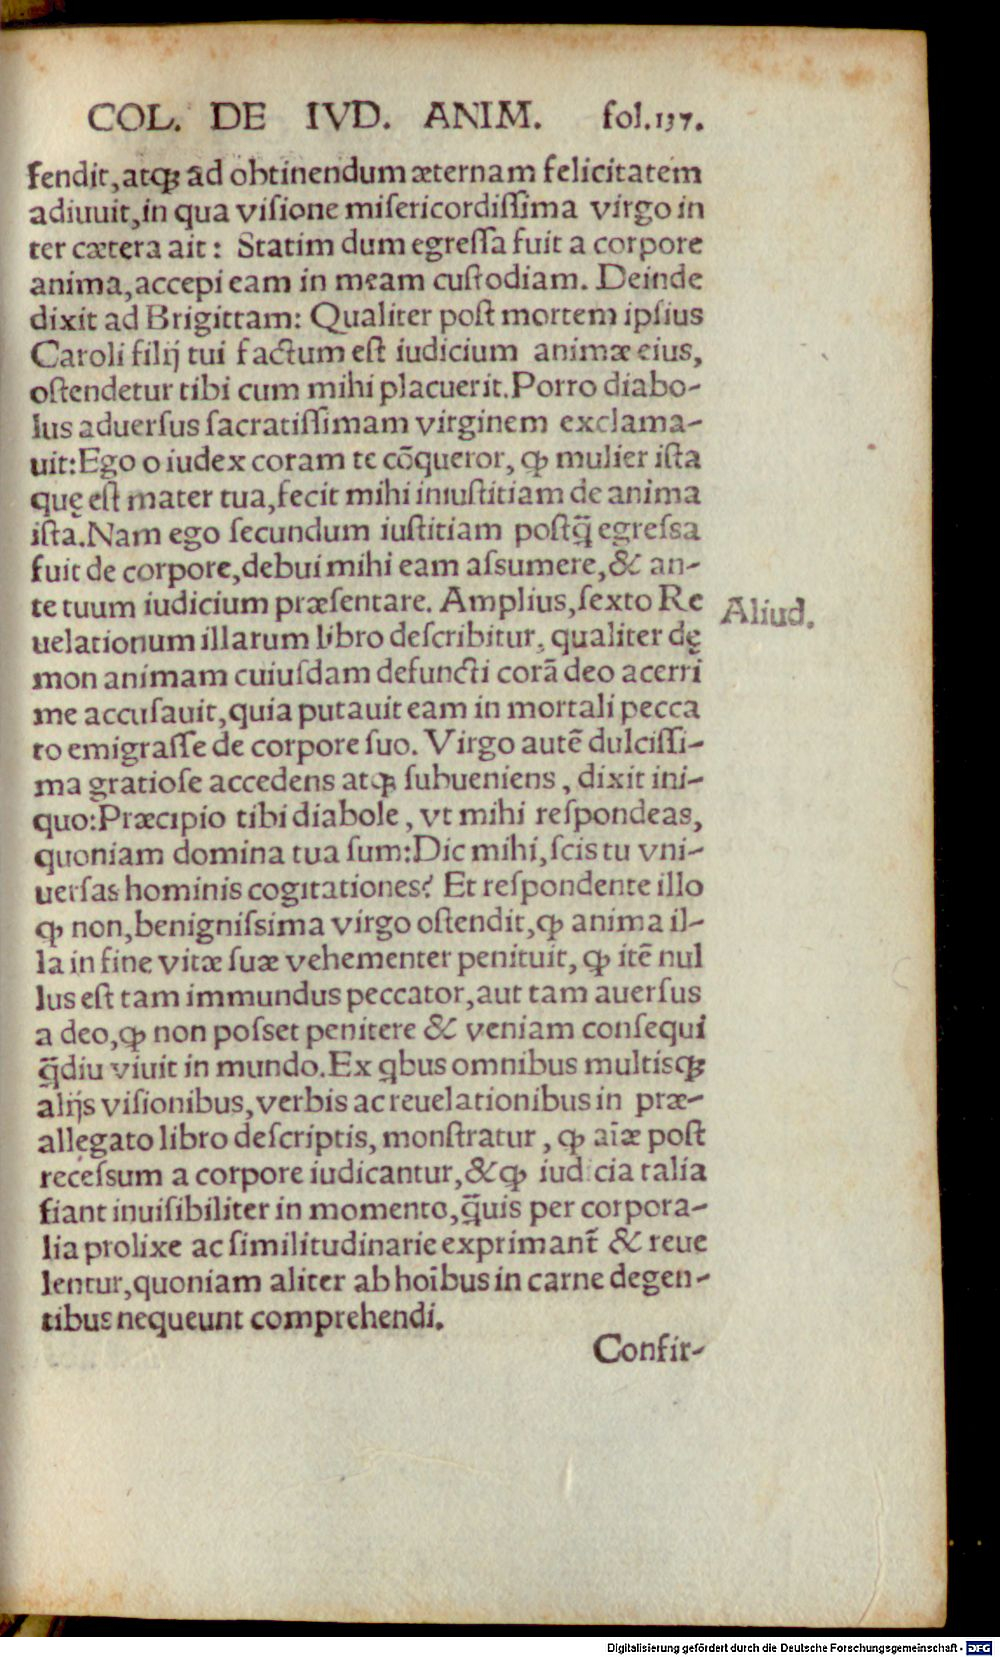 COL. DE IVD. ANIM. fol.137.
fendit,atqꝫ ad obtinendum æternam felicitatem
adiuuit,in qua viſione miſericordiſſima virgo in
ter cætera ait: Statim dum egreſſa fuit a corpore
anima,accepi eam in meam cuſtodiam. Deinde
dixit ad Brigittam: Qualiter poſt mortem ipſius
Caroli filij tui factum eſt iudicium animæ eius,
oſtendetur tibi cum mihi placuerit.Porro diabo-
lus aduerſus ſacratiſſimam virginem exclama-
uit:Ego o iudex coram te cōqueror, ꝙ mulier iſta
quę eſt mater tua,fecit mihi iniuſtitiam de anima
iſta.Nam ego ſecundum iuſtitiam poſtq̄ egreſsa
fuit de corpore,debui mihi eam aſsumere,& an-
te tuum iudicium præſentare. Amplius,ſexto Re
Aliud.
uelationum illarum libro deſcribitur, qualiter dę
mon animam cuiuſdam defuncti corā deo acerri
me accuſauit,quia putauit eam in mortali pecca
to emigraſſe de corpore ſuo. Virgo autē dulciſſi-
ma gratioſe accedens atqꝫ ſubueniens, dixit ini-
quo:Præcipio tibi diabole, vt mihi reſpondeas,
quoniam domina tua ſum:Dic mihi,ſcis tu vni-
uerſas hominis cogitationes? Et reſpondente illo
ꝙ non,benigniſsima virgo oſtendit,ꝙ anima il-
la in fine vitæ ſuæ vehementer penituit, ꝙ itē nul
lus eſt tam immundus peccator,aut tam auerſus
a deo,ꝙ non poſset penitere & veniam conſequi
q̄diu viuit in mundo.Ex qbus omnibus multisqꝫ
alijs viſionibus,verbis ac reuelationibus in præ-
allegato libro deſcriptis, monſtratur, ꝙ aīæ poſt
receſsum a corpore iudicantur,&ꝙ iudicia talia
fiant inuiſibiliter in momento,q̄uis per corpora-
lia prolixe ac ſimilitudinarie exprimant̄ & reue
lentur,quoniam aliter ab hoībus in carne degen-
tibus nequeunt comprehendi.
Confir-
Digitalisierung gefördert durch die Deutsche Forschungsgemeinschaft - DFG